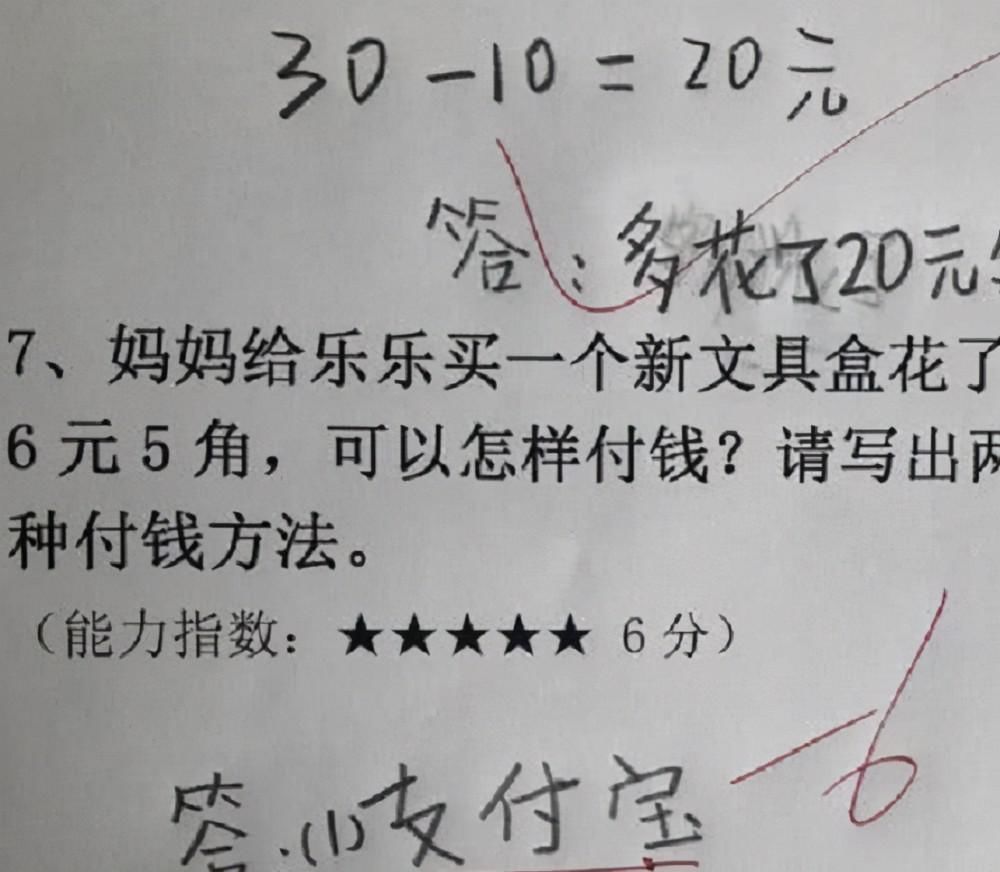 30-10=20元
答：多花了20元
7、妈妈给乐乐买一个新文具盒花了
6元5角，可以怎样付钱？请写出两
种付钱方法。
（能力指数：★★★★★ 6分）
-6
答.(1)支付宝